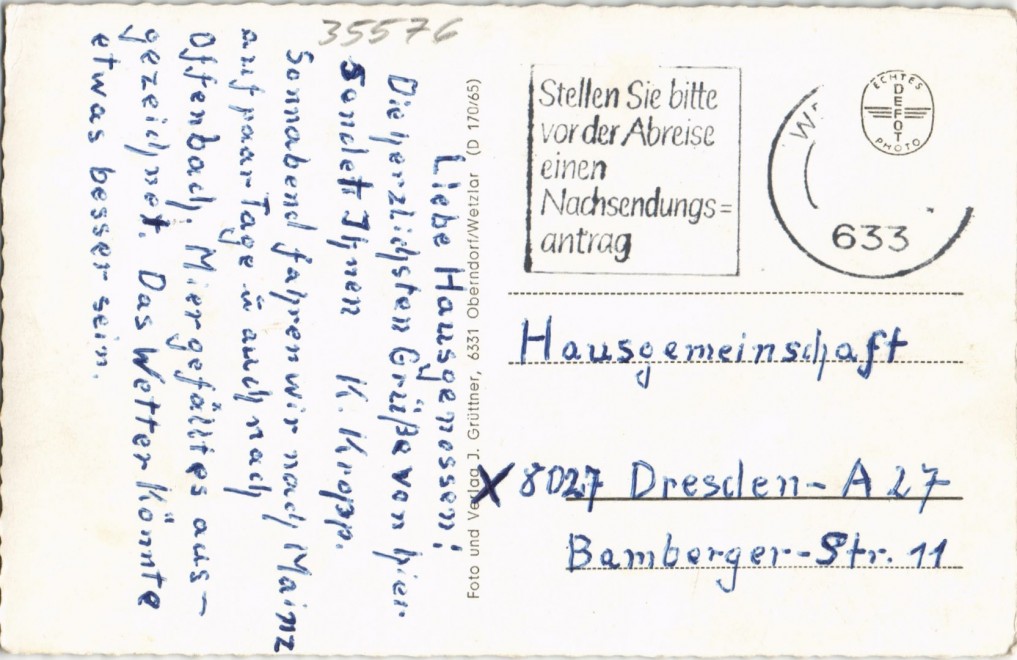 35576
Liebe Hausgenossen!
Die herzlichsten Grüße von hier
sendet Ihnen K. Kropp.
Sonnabend fahren wir nach Mainz
auf paar Tage u auch nach
Offenbach. Mier gefällt es aus-
gezeichnet. Das Wetter könnte
etwas besser sein.
Foto und Verlag J. Grüttner, 6331 Oberndorf/Wetzlar (D 170/65)
Stellen Sie bitte
vor der Abreise
einen
Nachsendungs=
antrag
633
ECHTES
DEFOT
PHOTO
Hausgemeinschaft
X 8027 Dresden-A 27
Bamberger-Str. 11